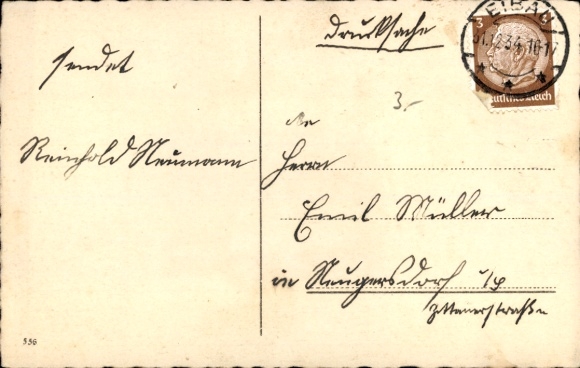 sendet
Reinhold Neumann
Drucksache
3 EIBAU
31.12.34.16-17
Deutsches Reich
3.-
An
Herrn
Emil Müller
in Neugersdorf i/S
Zittauerstraße
556